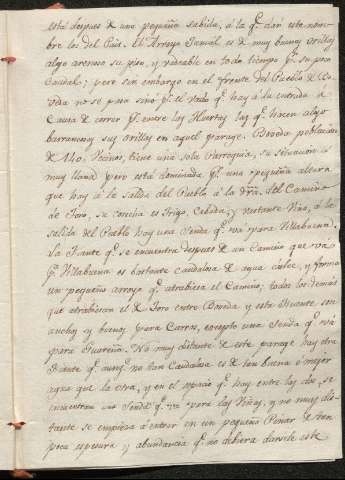 está despues de una pequeña subida, á la q.e dan este nom-
bre los del Pais. El Arroyo Inmál es de muy buenas orillas
algo arenoso su piso, y vadeable en todo tiempo p.r su poco
caudal; pero sin embargo en el frente del Pueblo de Bo-
veda no se pasa sinó p.r el vado q.e hay á la entrada á
Causa de correr p.r entre las Huertas las q.e hacen algo
barrancosas sus orillas en aquel parage. Boveda poblacion
de 140. Vecinos, tiene una sola Parroquia, su situacion es
muy llana pero está dominada p.r una pequeña altura
que hay á la salida del Pueblo á la dra. del Camino
de Toro, su cosecha es Trigo, Cebada, y bastante Vino, á la
salida del Pueblo hay una Senda q.e va para Villabuena.
La Fuente q.e se encuentra despues de un Camino que va
p.a Villabuena es bastante caudalosa de agua dulce, y forma
un pequeño arroyo q.e atrabiesa el Camino; todos los demas
que atrabiesan el de Toro entre Boveda y esta Fuente son
anchos y buenos para Carros, excepto una Senda q.e va
para Guareña. No muy distante de este parage hay otra
Fuente q.e aunq.e no tan Caudalosa es de tan buena ó mejor
agua que la otra, y en el espacio q.e hay entre las dos, se
encuentran una Senda q.e va para las Viñas, y no muy dis-
tante se empieza á entrar en un pequeño Pinar de tan
poca espesura y abundancia q.e no debiera darsele este